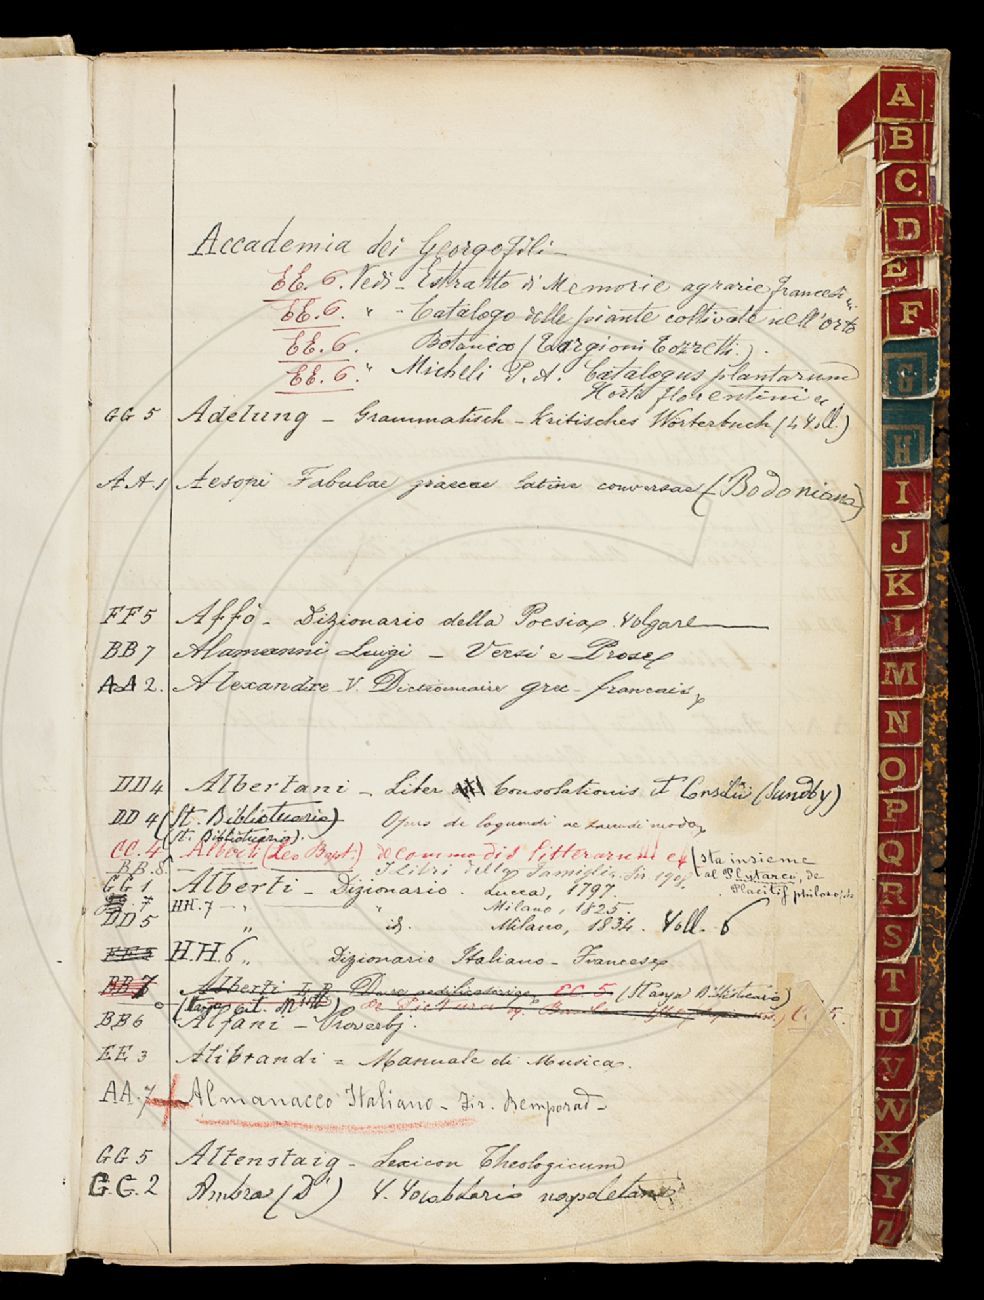 Accademia dei Georgofili -
EE. 6. Vedi - Estratto di Memorie agrarie francesi
EE. 6. " - Catalogo delle piante coltivate nell'orto
EE. 6. Botanico (Targioni Tozzetti).
EE. 6. " Micheli P. A. Catalogus plantarum
Horti florentini
GG 5 Adelung - Grammatisch - Kritisches Wörterbuch (4 Voll.)
AA 1 Aesopi Fabulae graecae latine conversae (Bodoniana)
FF 5 Affò - Dizionario della Poesia Volgare
BB 7 Alamanni Luigi - Versi e Prose
AA 2. Alexandre V. Dictionnaire grec - francais
DD 4 Albertani - Liber Consolationis et Consilii (Sundby)
DD 4 (St. Bibliotecario) Opus de loquendi ac tacendi modo
(St. Bibliotecario).
CC. 4 Alberti (Leo Bapt.) De commodis litterarum et (sta insieme
BB. 8. I Libri della Famiglia. 1908. al Plutarco, de
GG 1 Alberti - Dizionario. Lucca, 1797. Placitis philos.
7 HH. 7 - " " Milano, 1825.
DD 5 " id. Milano, 1834. Voll. 6
EE 5 H.H. 6 " Dizionario Italiano - Francese
BB 7 Alberti L. B. De re aedificatoria CC 5 (Stanza Bibliotecario)
De Pictura
BB 6 Alfani - Proverbj.
EE 3 Alibrandi = Manuale di Musica.
AA. 7 Almanacco Italiano - Fir. Bemporad -
GG 5 Altenstaig - Lexicon Theologicum
G.G. 2 Ambra (D') V. Vocabolario napoletano
A
B
C
D
E
F
G
H
I
J
K
L
M
N
O
P
Q
R
S
T
U
V
W
X
Y
Z